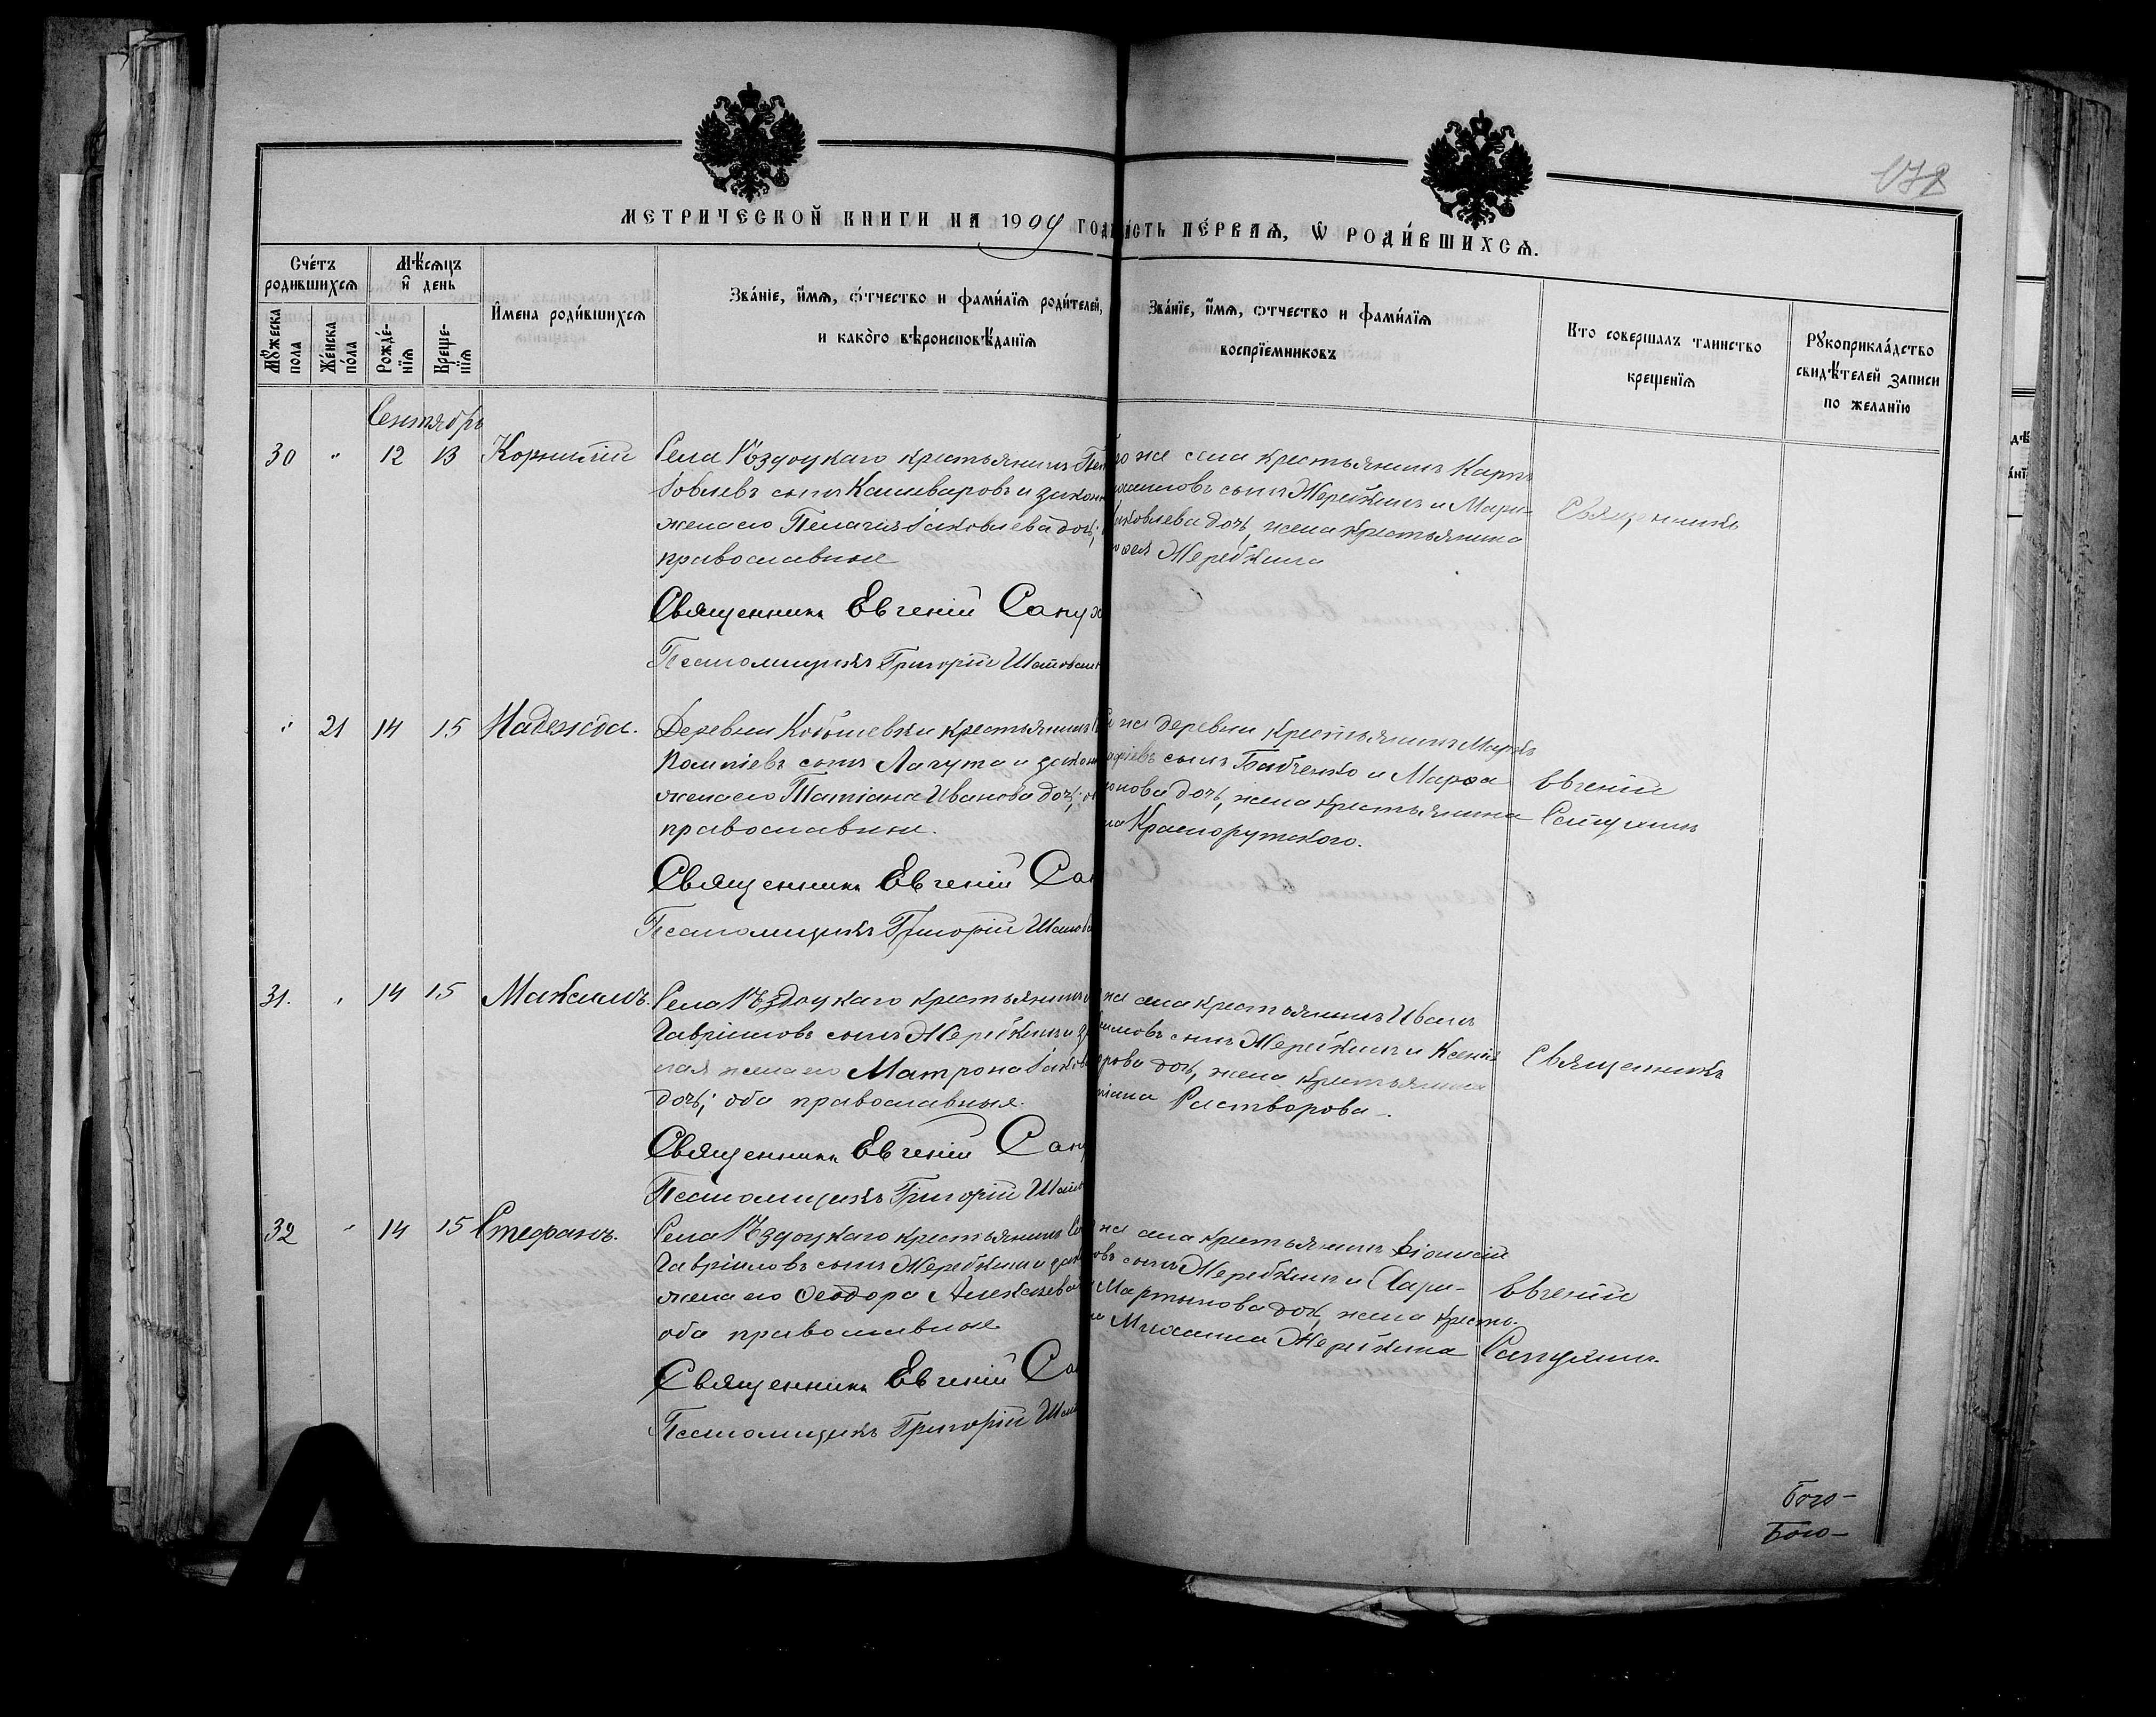 178
МЕТРИЧЕСКОЙ КНИГИ НА 1909 ГОДЪ
ЧАСТЬ ПЕ́РВАѦ, Ѡ РОДИ́ВШИХСѦ.
Сче́тъ родившихсѧ
Мꙋжеска пола
Же́нска по́ла
Мѣ́сѧцъ и день
Рожде́нїѧ
Креще́нїѧ
Имена роди́вшихсѧ
Зва́нїе, и́мѧ, о́тчество и фами́лїѧ роди́телей,
и како́го вѣроисповѣ́данїѧ
Зва́нїе, и́мѧ, отчество и фами́лїѧ
воспрїемниковъ
Кто совершалъ таинство
крещенїѧ
Рꙋкоприкла́дство
свидѣ́телей записи
по желанїю
Сентябрь
30 " 12 13 Корнилій
Села крестьянинъ
сынъ Кашеваровъ и закон
жена его Пелагія Іаковлева дочь;
православные
Священникъ Евгеній Сапух
Псаломщикъ Григорій
же села крестьянинъ Карпъ
сынъ Жеребкинъ и Мари-
Іаковлева дочь, жена крестьянина
Жеребкина
Священникъ
" 21 14 15 Надежда.
Деревни крестьянинъ
сынъ Лагута и закон
жена его Татіана Иванова дочь;
православные.
Священникъ Евгеній Са
Псаломщикъ Григорій
же деревни крестьянинъ Маркъ
сынъ Бабченко и Марѳа
дочь, жена крестьянина
Краснорутского.
Евгеній
Сапухинъ
31. " 14 15 Максимъ.
Села крестьянинъ
Гавріиловъ сынъ Жеребкинъ и за
ная жена его Матрона Іаков
дочь; оба православные.
Священникъ Евгеній Сапу
Псаломщикъ Григорій
же села крестьянинъ Иванъ
сынъ Жеребкинъ и Ксенія
дочь, жена крестьянина
Растворова.
Священникъ
32 " 14 15 Стефанъ.
Села крестьянинъ
Гавріиловъ сынъ Жеребкинъ и зак
жена его Ѳеодора Алексѣева
оба православные
Священникъ Евгеній Са
Псаломщикъ Григорій
же села крестьянинъ Діонисій
овъ сынъ Жеребкинъ и Хари-
Мартынова дочь, жена кресть-
Михаила Жеребкина
Евгеній
Сапухинъ.
Бого-
Бого-